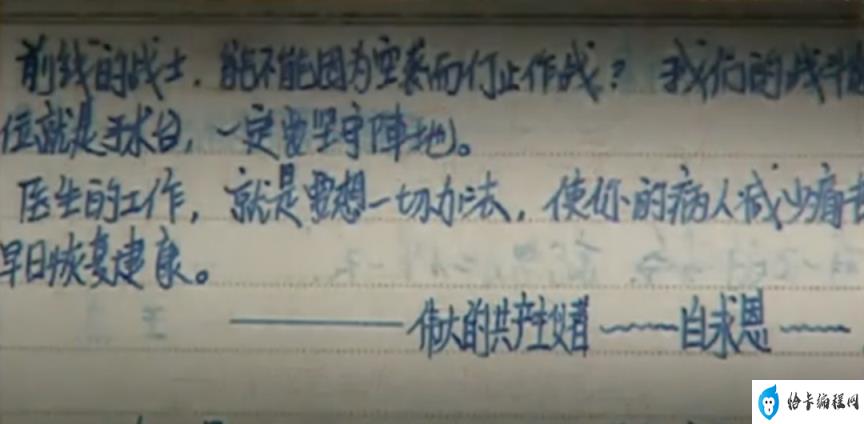 前线的战士．能不能因为空袭而仃止作战？ 我们的战斗
位就是手术台，一定要坚守阵地。
医生的工作，就是要想一切办法，使你的病人减少痛
早日恢复健康。
——伟大的共产主义者 ~~~白求恩~~~
恰卡编程网